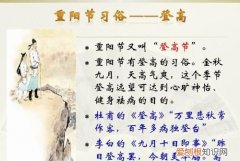 重阳节习俗——登高
重阳节又叫“登高节”。
重阳节有登高的习俗。金秋
九月，天高气爽，这个季节
登高远望可达到心旷神怡、
健身祛病的目的。
杜甫的《登高》“万里悲秋常
作客，百年多病独登台”
李白的《九月十日即事》“昨
日登高罢，今朝